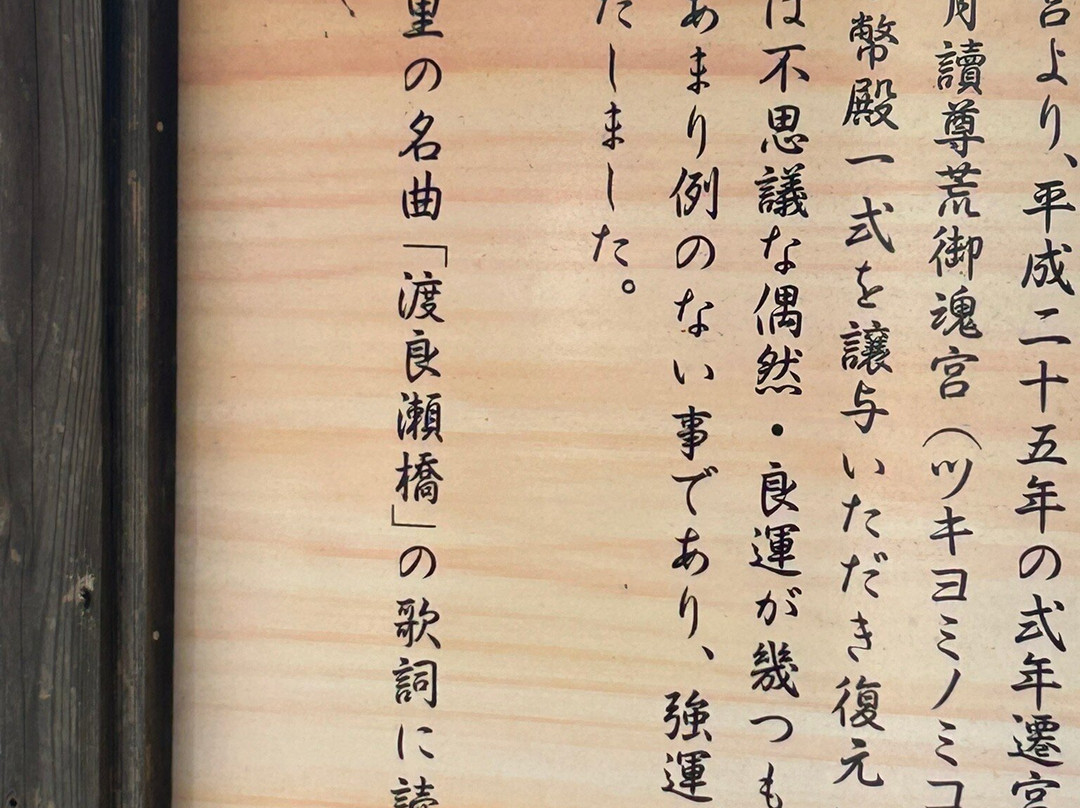 より、平成二十五年の式年遷宮
讀尊荒御魂宮(ツキヨミノミコ
幣殿一式を譲与いただき復元
は不思議な偶然・良運が幾つも
あまり例のない事であり、強運
たしました。
里の名曲「渡良瀬橋」の歌詞に